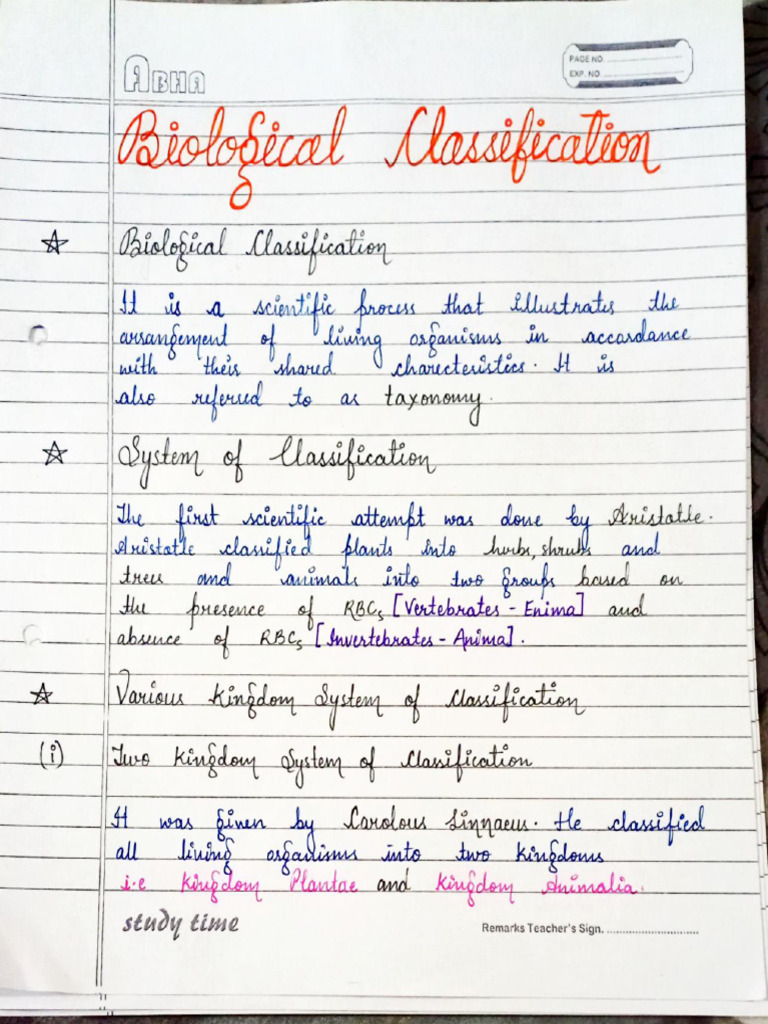 ABHA
PAGE NO.
EXP. NO.
Biological Classification
Biological Classification
It is a scientific process that illustrates the
arrangement of living organisms in accordance
with their shared charecteristics. It is
also referred to as taxonomy.
System of Classification
The first scientific attempt was done by Aristotle.
Aristotle classified plants into herbs, shrubs and
trees and animals into two groups based on
the presence of RBCs [Vertebrates - Enima] and
absence of RBCs [Invertebrates - Anima].
Various Kingdom System of Classification
(i) Two Kingdom System of Classification
It was given by Carolous Linnaeus. He classified
all living organisms into two kingdoms
i.e Kingdom Plantae and Kingdom Animalia.
study time
Remarks Teacher's Sign.